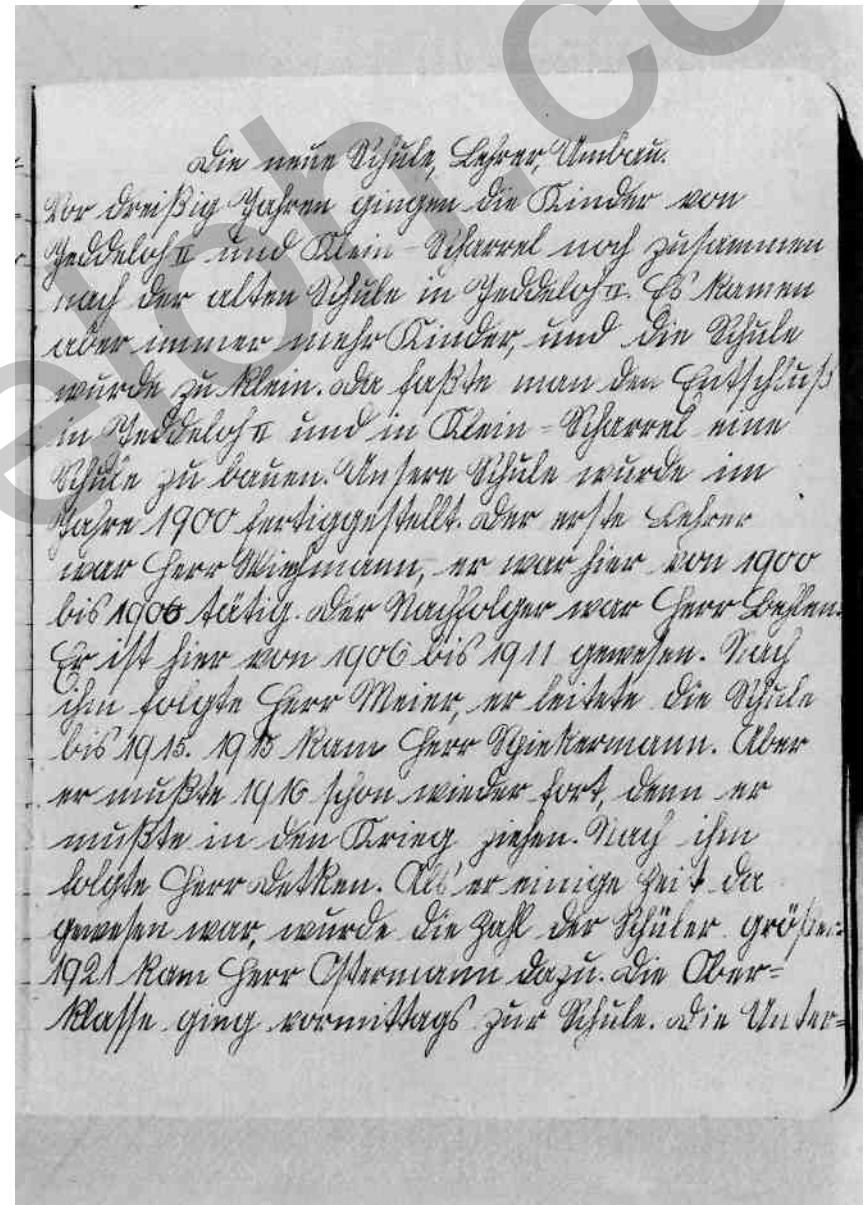 Die neue Schule, Lehrer, Umbau.
Vor dreißig Jahren gingen die Kinder von
Jeddeloh II und Klein-Scharrel noch zusammen
nach der alten Schule in Jeddeloh II. Es kamen
aber immer mehr Kinder, und die Schule
wurde zu klein. Da faßte man den Entschluß
in Jeddeloh II und in Klein-Scharrel eine
Schule zu bauen. Unsere Schule wurde im
Jahre 1900 fertiggestellt. Der erste Lehrer
war Herr Wichmann, er war hier von 1900
bis 1906 tätig. Der Nachfolger war Herr
Er ist hier von 1906 bis 1911 gewesen. Nach
ihm folgte Herr Meier, er leitete die Schule
bis 1915. 1915 kam Herr Spiekermann. Aber
er mußte 1916 schon wieder fort, denn er
mußte in den Krieg ziehen. Nach ihm
folgte Herr Detken. Als er einige Zeit da
gewesen war, wurde die Zahl der Schüler größer.
1921 kam Herr Ostermann dazu. Die Ober=
klasse ging vormittags zur Schule. Die Unter=